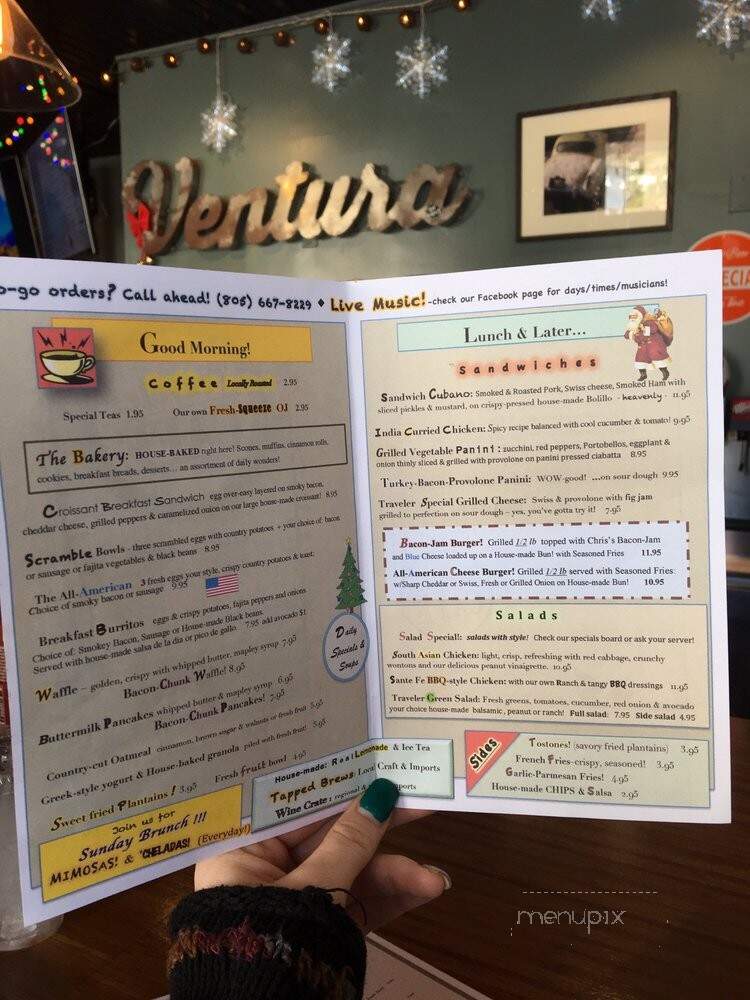 Ventura
ECIA
o-go orders? Call ahead! (805) 667-8229 ♦ Live Music! -check our Facebook page for days/times/musicians!
Good Morning!
Coffee Locally Roasted 2.95
Special Teas 1.95 Our own Fresh-Squeeze OJ 2.95
The Bakery: HOUSE-BAKED right here! Scones, muffins, cinnamon rolls,
cookies, breakfast breads, desserts… an assortment of daily wonders!
Croissant Breakfast Sandwich egg over-easy layered on smoky bacon,
cheddar cheese, grilled peppers & caramelized onion on our large house-made croissant! 8.95
Scramble Bowls - three scrambled eggs with country potatoes + your choice of bacon
or sausage or fajita vegetables & black beans 8.95
The All-American 3 fresh eggs your style, crispy country potatoes & toast;
Choice of smoky bacon or sausage 9.95
Breakfast Burritos eggs & crispy potatoes, fajita peppers and onions
Choice of: Smokey Bacon, Sausage or House-made Black beans.
Served with house-made salsa de la dia or pico de gallo. 7.95 add avocado $1
Waffle – golden, crispy with whipped butter, maple syrup 7.95
Bacon-Chunk Waffle! 8.95
Buttermilk Pancakes whipped butter & maple syrup 6.95
Bacon-Chunk Pancakes! 7.95
Country-cut Oatmeal cinnamon, brown sugar & walnuts or fresh fruit 5.95
Greek-style yogurt & House-baked granola piled with fresh fruit! 5.95
Fresh fruit bowl 4.95
Sweet fried Plantains! 3.95
Daily
Specials &
Soups
Join us for
Sunday Brunch !!!
MIMOSAS! & 'CHELADAS! (Everyday!)
House-made: Real Lemonade & Ice Tea
Tapped Brews: Local Craft & Imports
Wine Crate: regional &
Lunch & Later…
Sandwiches
Sandwich Cubano: Smoked & Roasted Pork, Swiss cheese, Smoked Ham with
sliced pickles & mustard, on crispy-pressed house-made Bolillo - heavenly - 11.95
India Curried Chicken: Spicy recipe balanced with cool cucumber & tomato! 9.95
Grilled Vegetable Panini: zucchini, red peppers, Portobellos, eggplant &
onion thinly sliced & grilled with provolone on panini pressed ciabatta 8.95
Turkey-Bacon-Provolone Panini: WOW-good! …on sour dough 9.95
Traveler Special Grilled Cheese: Swiss & provolone with fig jam
grilled to perfection on sour dough – yes, you've gotta try it! 7.95
Bacon-Jam Burger! Grilled 1/2 lb topped with Chris's Bacon-Jam
and Blue Cheese loaded up on a House-made Bun! with Seasoned Fries 11.95
All-American Cheese Burger! Grilled 1/2 lb served with Seasoned Fries
w/Sharp Cheddar or Swiss, Fresh or Grilled Onion on House-made Bun! 10.95
Salads
Salad Special: salads with style! Check our specials board or ask your server!
South Asian Chicken: light, crisp, refreshing with red cabbage, crunchy
wontons and our delicious peanut vinaigrette. 10.95
Sante Fe BBQ-style Chicken: with our own Ranch & tangy BBQ dressings 11.95
Traveler Green Salad: Fresh greens, tomatoes, cucumber, red onion & avocado
your choice house-made balsamic, peanut or ranch! Full salad: 7.95 Side salad 4.95
Sides
Tostones! (savory fried plantains) 3.95
French Fries-crispy, seasoned! 3.95
Garlic-Parmesan Fries! 4.95
House-made CHIPS & Salsa 2.95
menupix